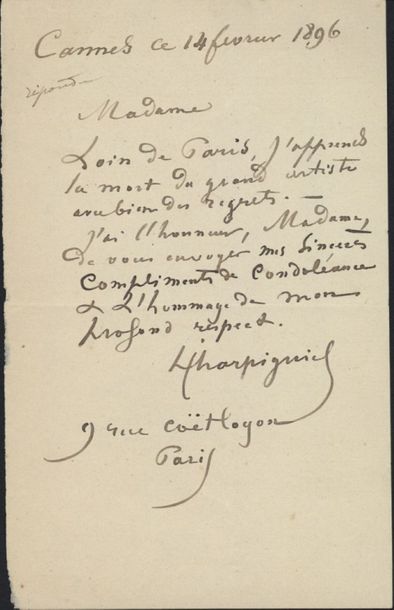 Cannes ce 14 fevrier 1896
répondu
Madame
Loin de Paris, J'apprends
la mort du grand artiste
avec bien des regrets. —
J'ai l'honneur, Madame,
de vous envoyer mes sincères
Compliments de Condoléance
& l'hommage de mon
profond respect.
Hharpignies
9 rue Coëtlogon
Paris